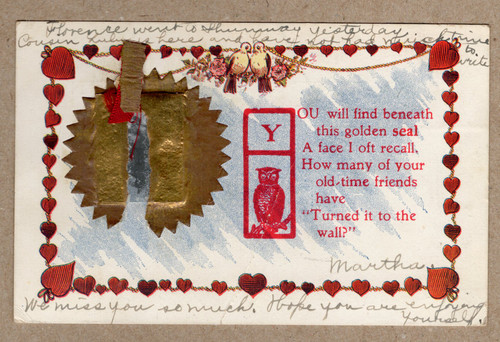 Florence went to Shumway yesterday
Cousin here and have not had much time to write
YOU will find beneath
this golden seal
A face I oft recall,
How many of your
old-time friends
have
"Turned it to the
wall?"
Martha.
We miss you so much. Hope you are enjoying
yourself.